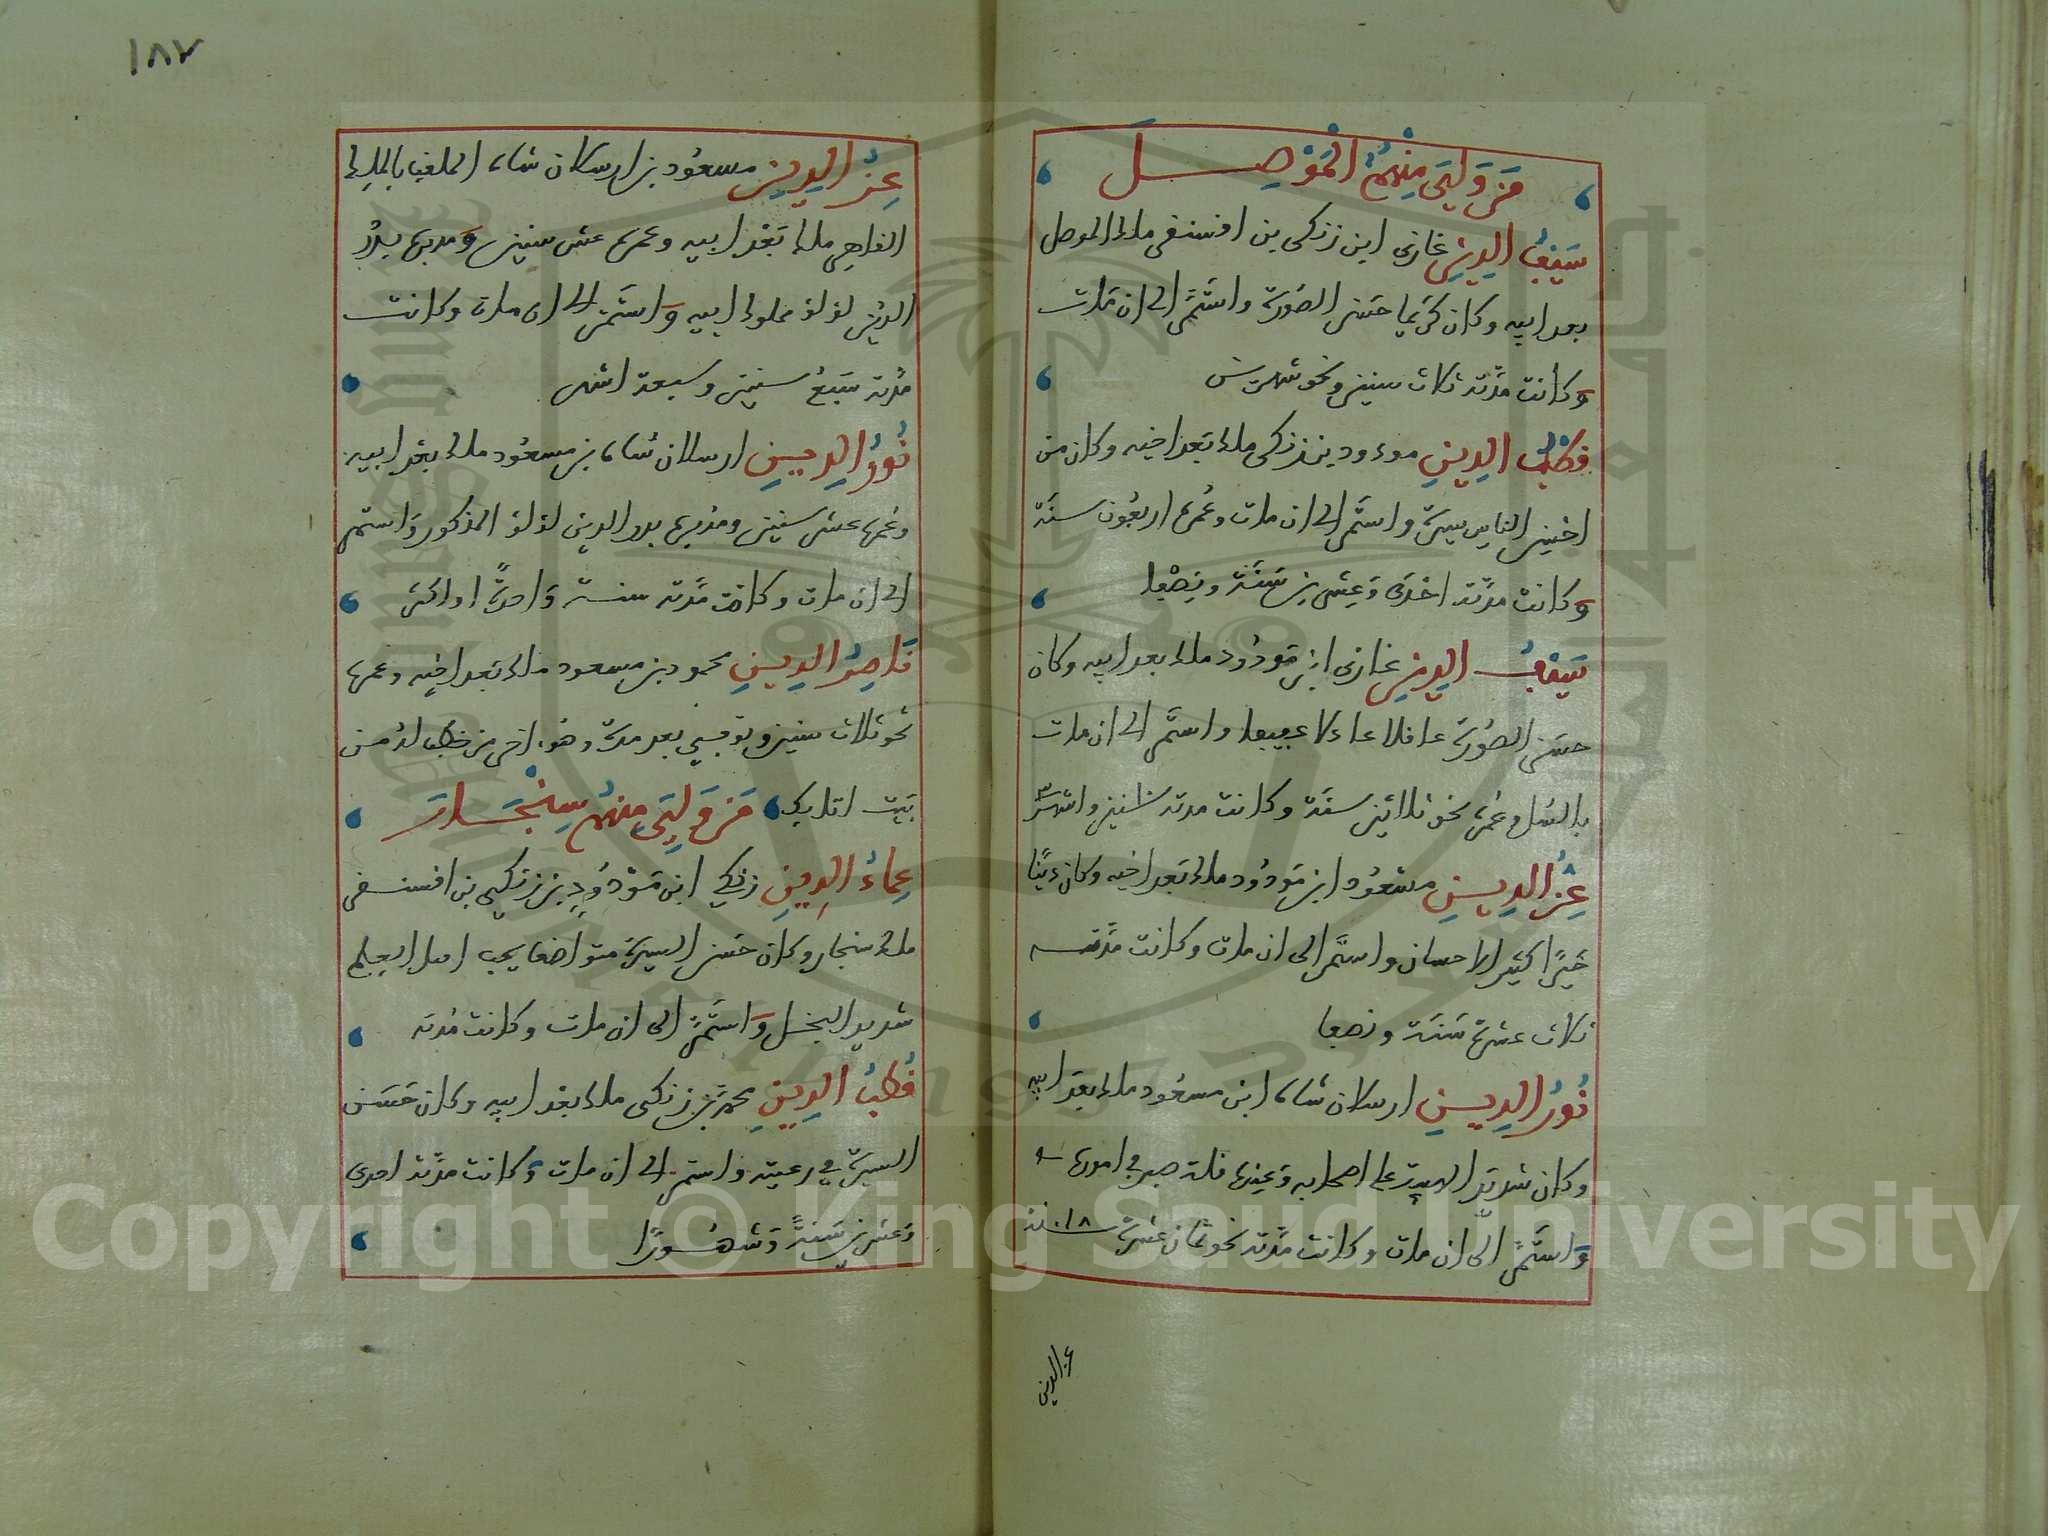 من ولي منهم الموصل
سيف الدين غازي ابن زنكي بن اقسنقر ملك الموصل
بعد ابيه وكان كريما حسن الصورة واستمر الى ان مات
وكانت مدته ثلاث سنين ونحو شهرين
قطب الدين مودود بن زنكي ملك بعد اخيه وكان من
احسن الناس سيرة واستمر الى ان مات وعمره اربعون سنة
وكانت مدته احدى وعشرين سنة ونصفا
سيف الدين غازي ابن مودود ملك بعد ابيه وكان
حسن الصورة عاقلا عادلا عفيفا واستمر الى ان مات
بالسل وعمره نحو ثلاثين سنة وكانت مدته سنين واشهر
عز الدين مسعود ابن مودود ملك بعد اخيه وكان دينا
خيرا كثير الاحسان واستمر الى ان مات وكانت مدته
ثلاث عشرة سنة ونصفا
نور الدين ارسلان شاه ابن مسعود ملك بعد ابيه
وكان شديد الهيبة على اصحابه وعنده قلة صبر في اموره
واستمر الى ان مات وكانت مدته نحو ثمان عشرة سنة ١٨
عز الدين
١٨٧
عز الدين مسعود بن ارسلان شاه الملقب بالملك
القاهر ملك بعد ابيه وعمره عشر سنين ومدبره بدر
الدين لؤلؤ مملوك ابيه واستمر الى ان مات وكانت
مدته سبع سنين وسبعة اشهر
نور الدين ارسلان شاه بن مسعود ملك بعد ابيه
وعمره عشر سنين ومدبره بدر الدين لؤلؤ المذكور واستمر
الى ان مات وكانت مدته سنة واحدة او اكثر
ناصر الدين محمود بن مسعود ملك بعد اخيه وعمره
نحو ثلاث سنين وتوفي بعد مدة وهو اخر من خطب له من
بيت اتابك من ولي منهم سنجار
عماد الدين زنكي ابن مودود بن زنكي بن اقسنقر
ملك سنجار وكان حسن السيرة متواضعا يحب اهل العلم
شديد البخل واستمر الى ان مات وكانت مدته
قطب الدين محمد بن زنكي ملك بعد ابيه وكان حسن
السيرة في رعيته واستمر الى ان مات وكانت مدته احدى
وعشرين سنة وشهورا
Copyright © King Saud University